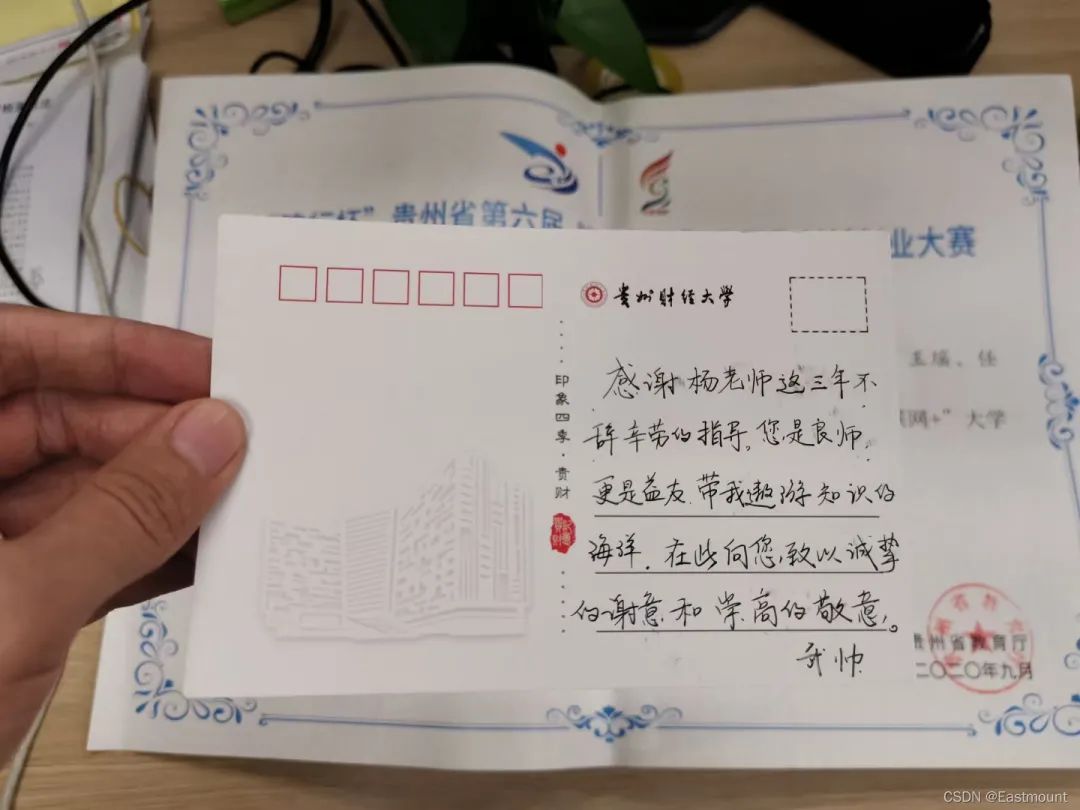 贵州省第六届
业大赛
贵州财经大学
印象四季·贵财
感谢杨老师这三年不
辞辛劳的指导。您是良师,
更是益友.带我遨游知识的
海洋.在此向您,致以诚挚
的谢意和崇高的敬意。
武帅
玉瑶、任
联网+”大学
贵州省教育厅
二〇二〇年九月
CSDN @Eastmount